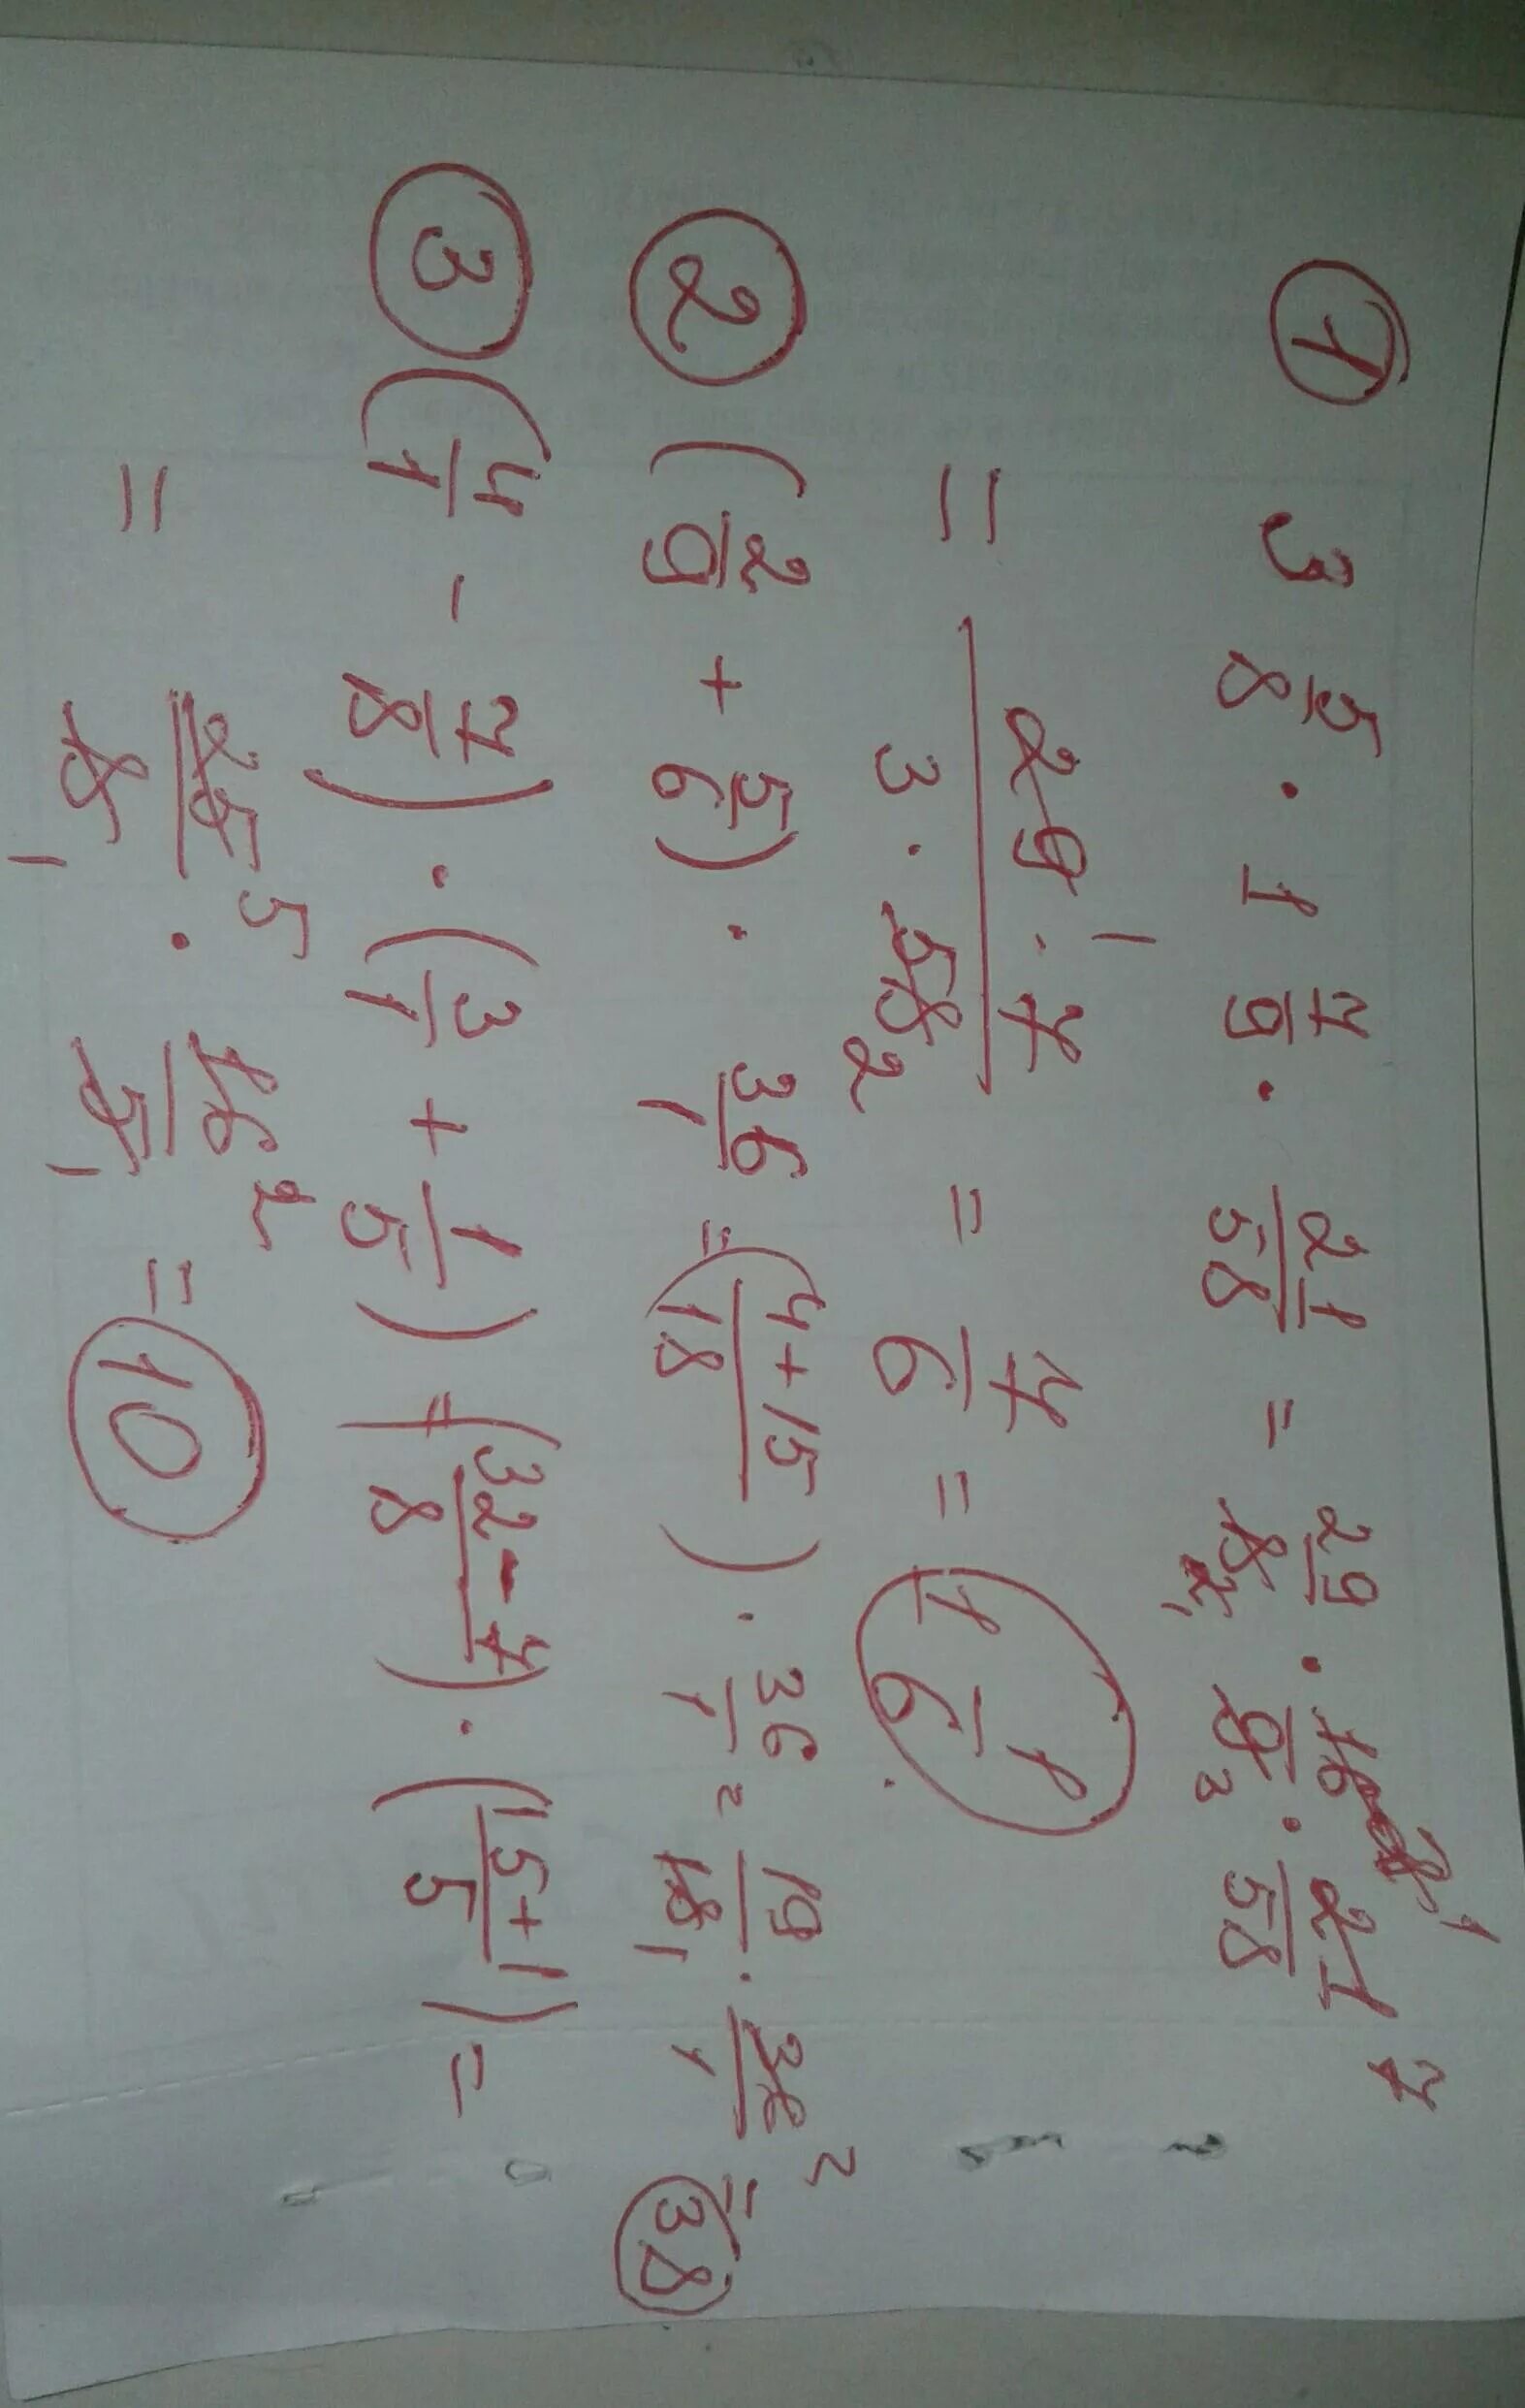 ① 3 5/8 · 1 7/9 · 21/58 = 29/8 · 16/9 · 21/58
= 29 · 7 / 3 · 58 = 7/6 = 1 1/6.
② (2/9 + 5/6) · 36/1 = (4+15/18) · 36/1 = 19/18 · 36/1 = 38
③ (4/1 - 7/8) · (3/1 + 1/5) = (32-7/8) · (15+1/5) =
= 25/8 · 16/5 = 10